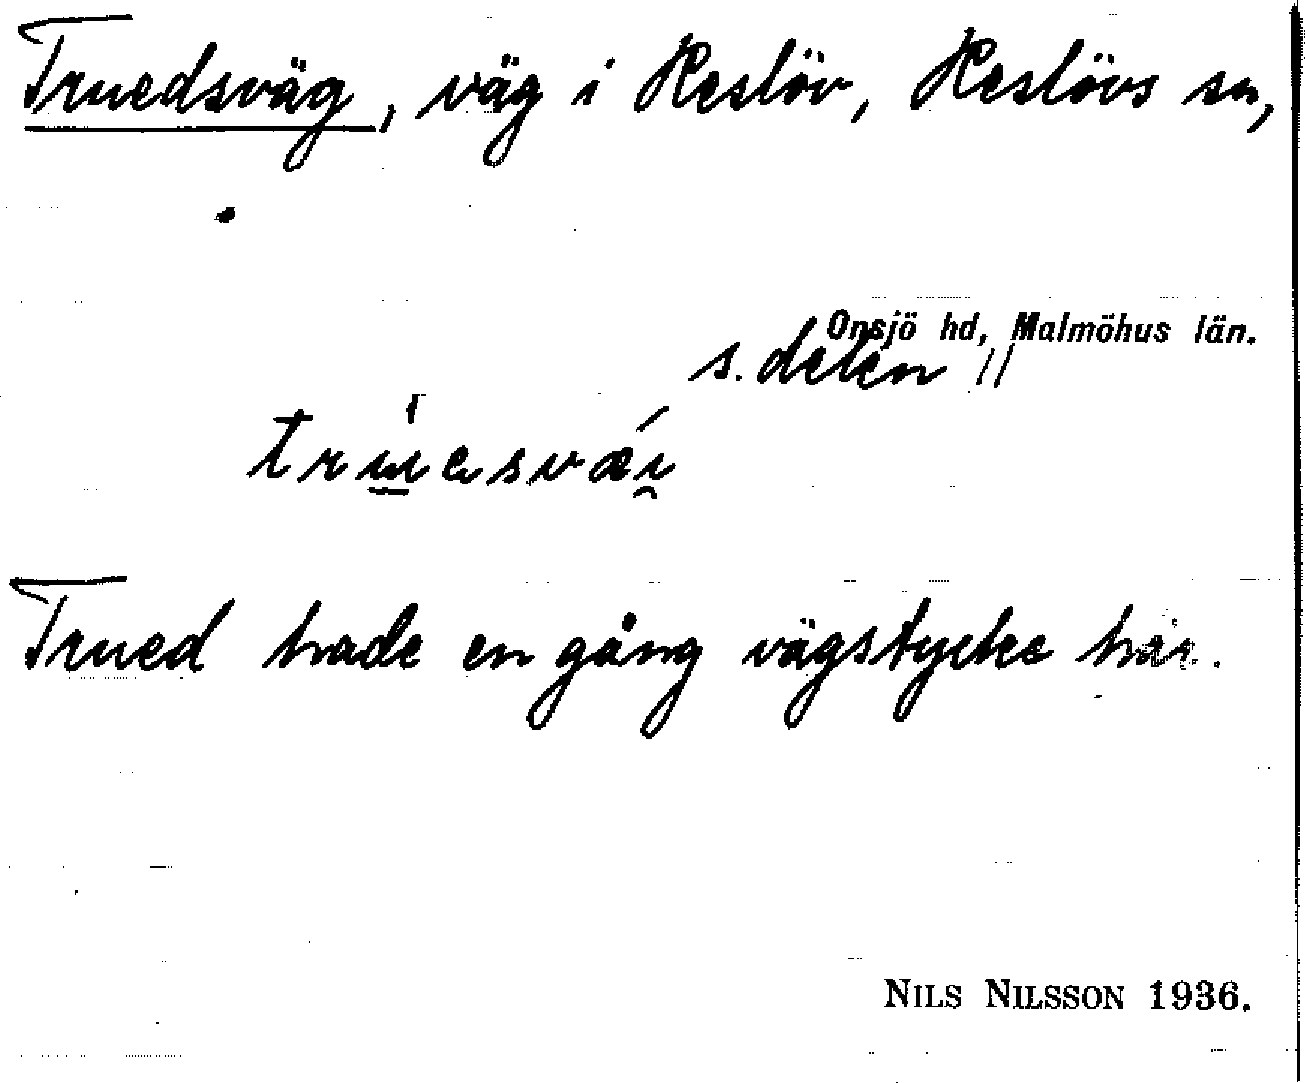 Truedsväg, väg i Reslöv, Reslövs sn,
Onsjö hd, Malmöhus län.
s. delen //
Trued hade en gång vägstycke här.
NILS NILSSON 1936.